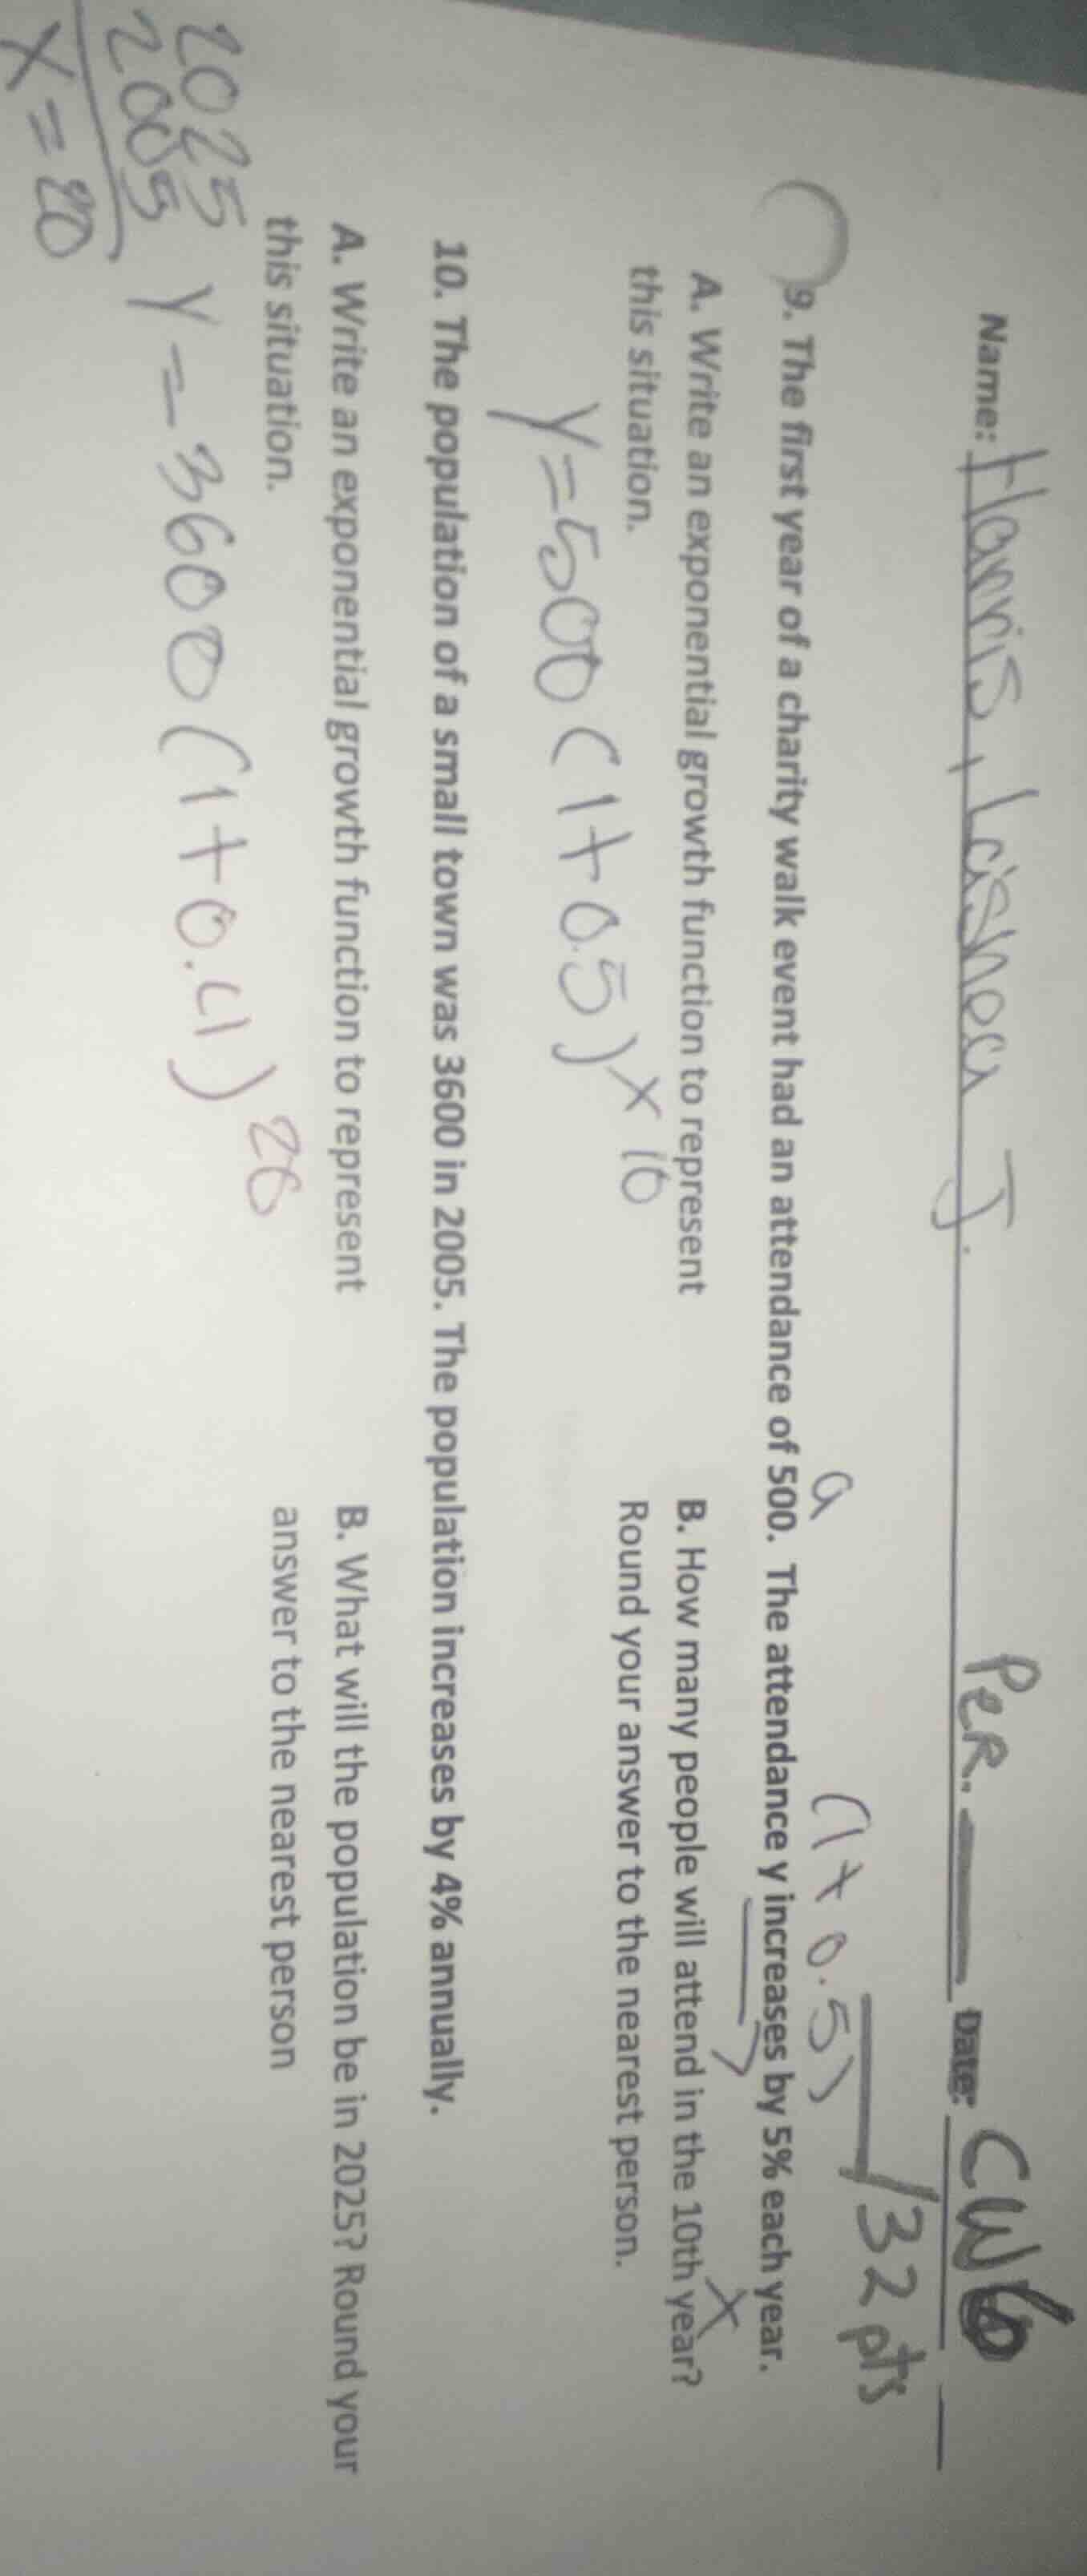 Name: Harris, Laishea J. PER. ____ Date: CW6
___/32 pts
a (1+0.5)
9. The first year of a charity walk event had an attendance of 500. The attendance y increases by 5% each year.
A. Write an exponential growth function to represent
this situation.
y=500(1+0.5)x 10
B. How many people will attend in the 10th year?
x
Round your answer to the nearest person.
10. The population of a small town was 3600 in 2005. The population increases by 4% annually.
A. Write an exponential growth function to represent
this situation.
y=3600(1+0.4)20
B. What will the population be in 2025? Round your
answer to the nearest person
2025
2005
x=20